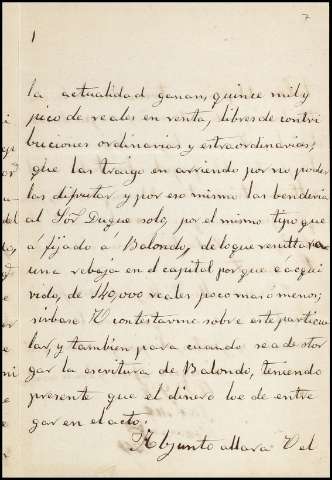 7
1
la actualidad ganan, quince mil y
pico de reales en venta, libres de contri
buciones ordinarias y estraordinarias;
que las traigo en arriendo por no poder
las disfrutar, y por eso mismo las benderia
al Sor Duque solo, por el mismo tipo que
a fijado á Balondo, de lo que resulta
una rebaja en el capital porque é acqui
rido, de 140,000 reales poco mas ó menos;
sirbase V contestarme sobre este particu
lar, y tambien para cuando se a de otor
gar la escritura de Balondo, teniendo
presente que el dinero loe de entre
gar en el acto.
Adjunto allara V el